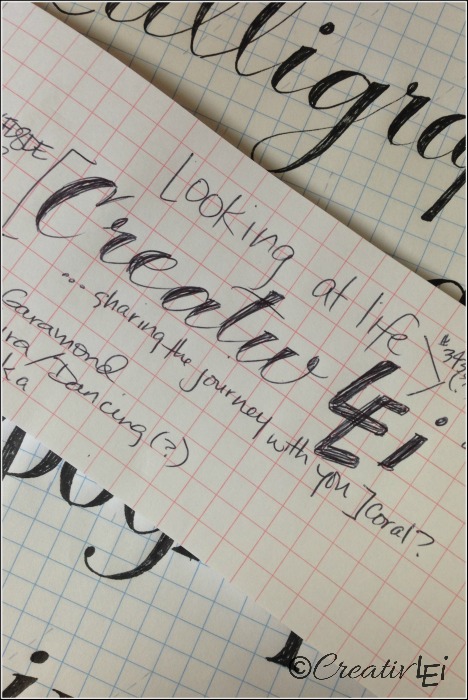 Calligra
Looking at life
Creativ LEi
... sharing the journey with you ] Coral?
Garamond
/Dancing (?)
©CreativLEi